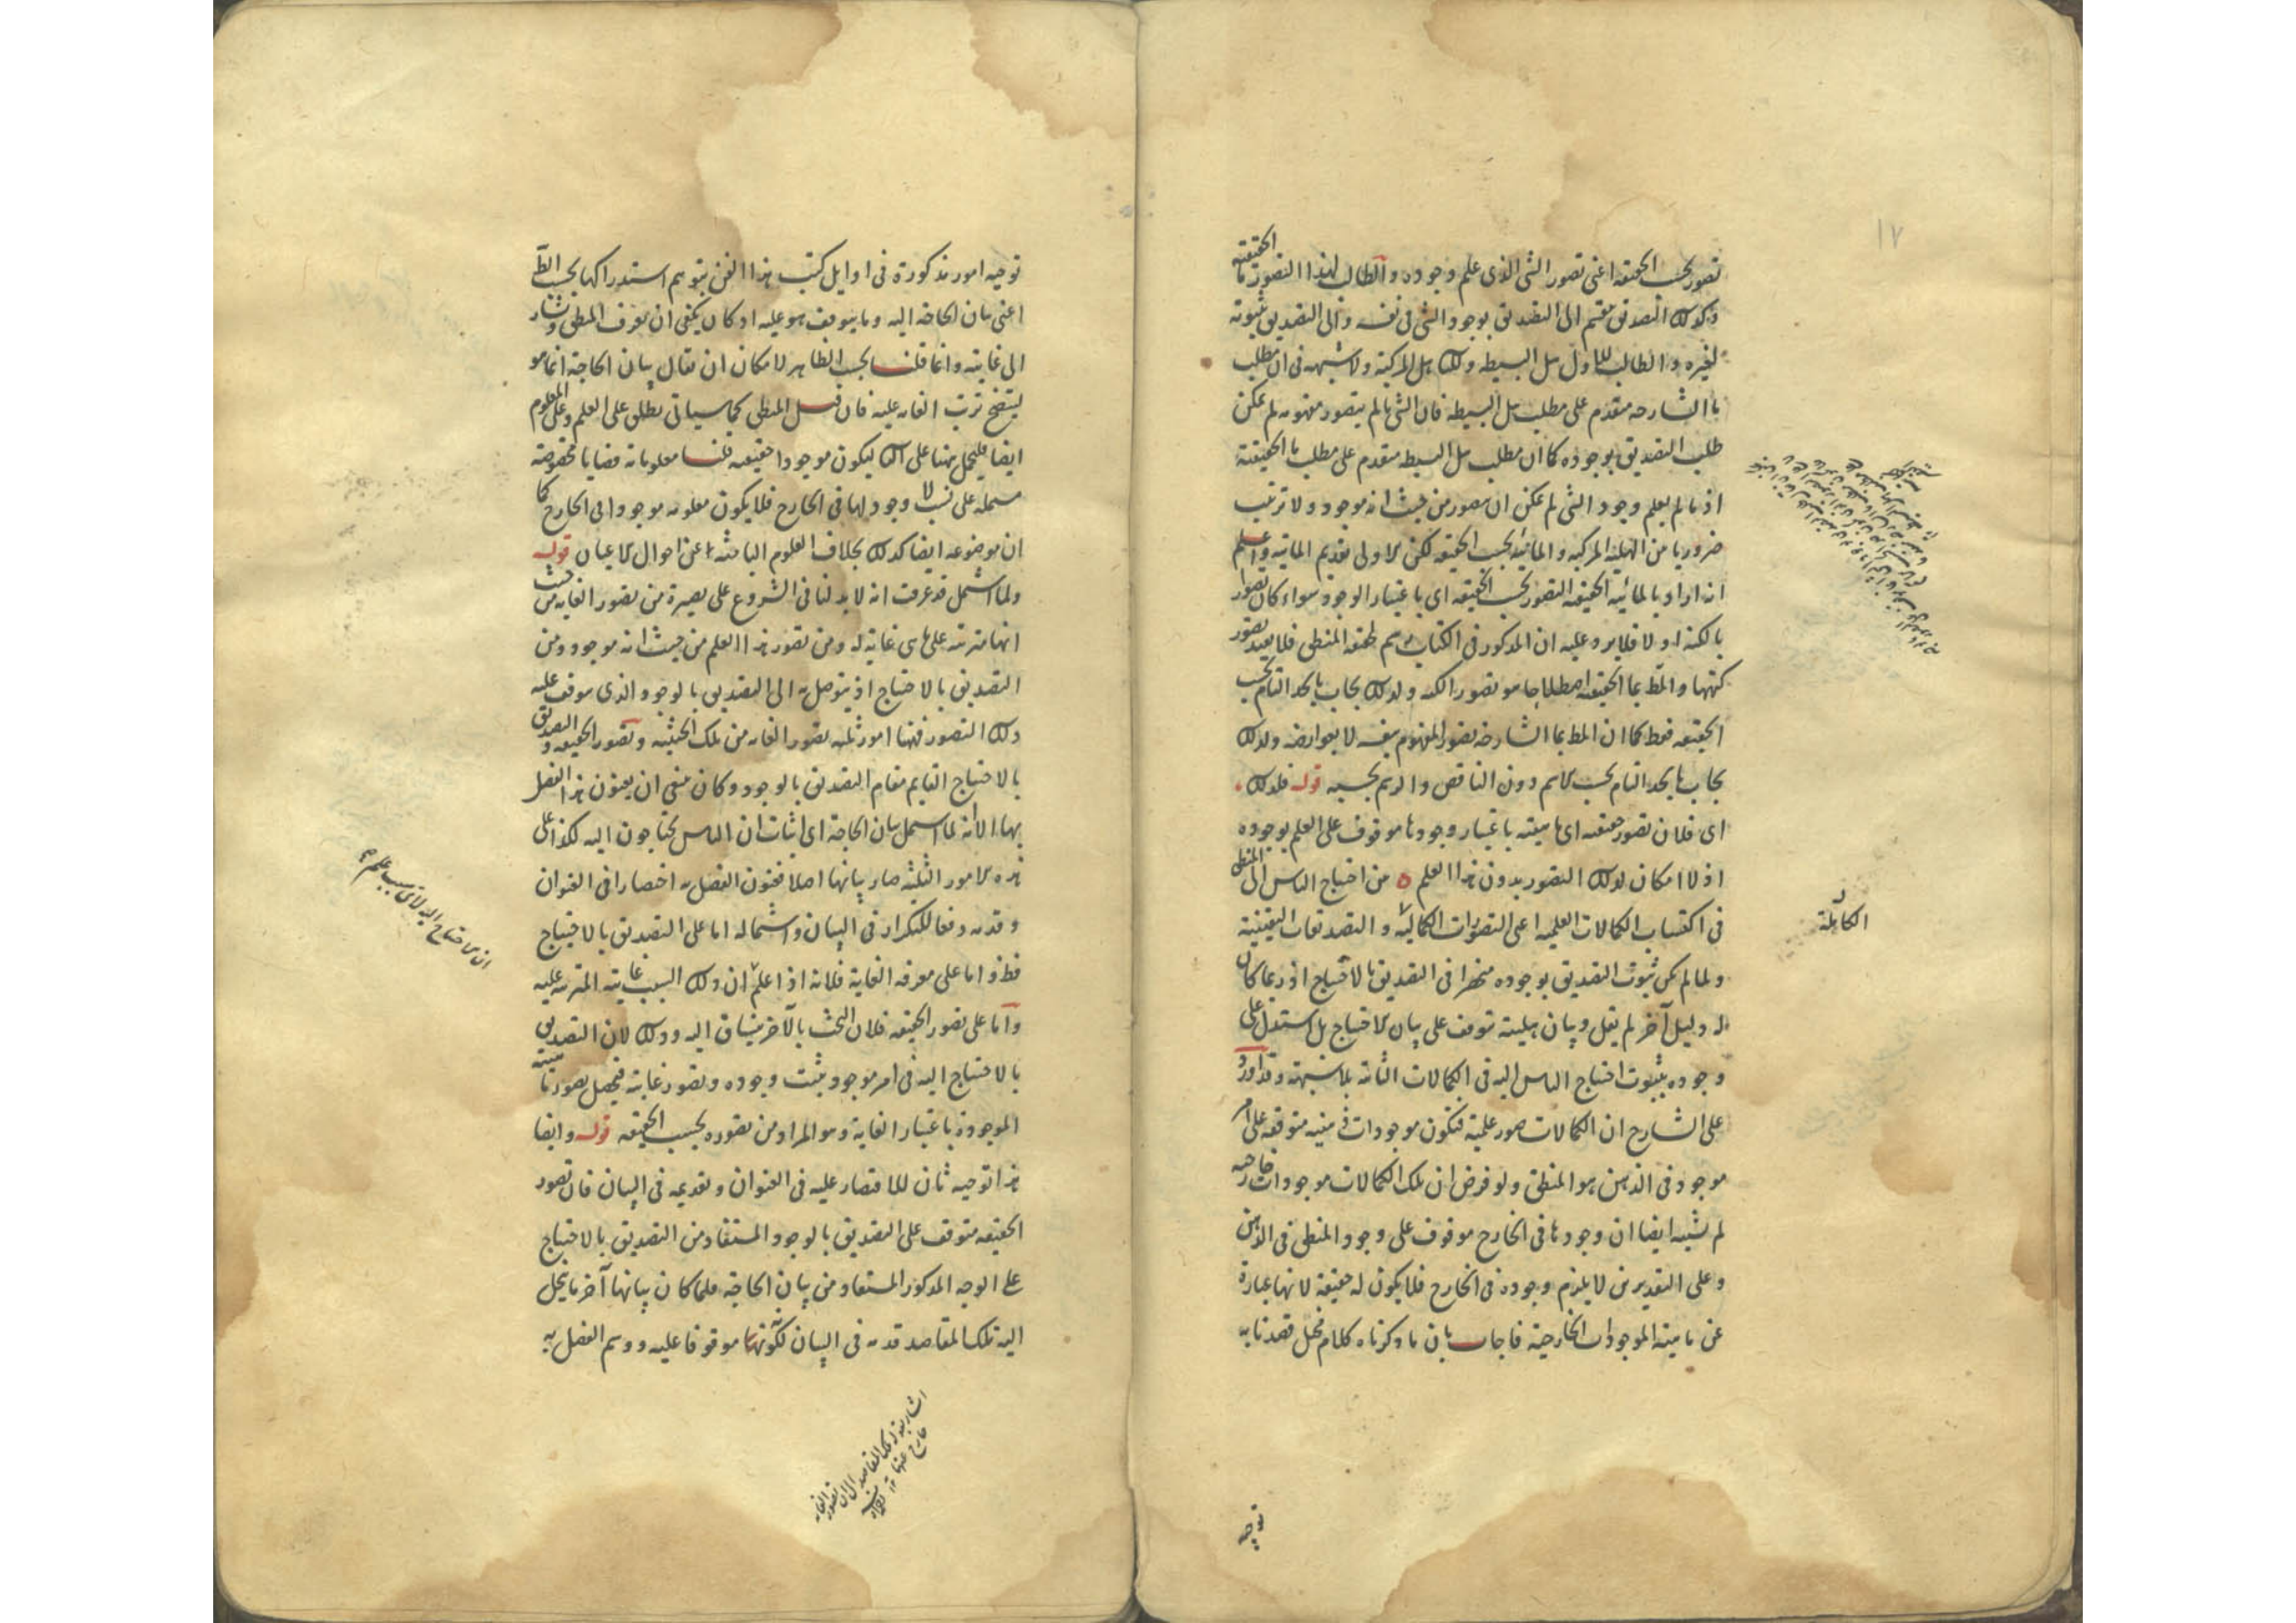 ١٧
تصور بحسب الحقيقة اعنى تصور الشئ الذى علم وجوده والطالب لهذا التصور ما الحقيقية
وكذلك التصديق ينقسم الى التصديق بوجود الشئ فى نفسه والى التصديق بثبوته
لغيره والطالب للاول هل البسيطة وللثانى هل المركبة ولا شبهة فى ان مطلب
ما الشارحة متقدم على مطلب هل البسيطة فان الشئ ما لم يتصور مفهومه لم يمكن
طلب التصديق بوجوده كما ان مطلب هل البسيطة متقدم على مطلب ما الحقيقية
اذ ما لم يعلم وجود الشئ لم يمكن ان يتصور من حيث انه موجود ولا ترتيب
ضروريا من الهلية المركبة والمائية بحسب الحقيقة لكن الاولى تقديم المائية واعلم
انه اراد بالمائية الحقيقية التصور بحسب الحقيقة اى باعتبار الوجود سواء كان تصورا
بالكنه او لا فلا يرد عليه ان المذكور فى الكتاب رسم لحقيقة المنطق فلا يفيد تصور
كنهها والمط بما الحقيقية اصطلاحا هو تصور الكنه ولذلك يجاب بالحد التام بحسب
الحقيقة فقط كما ان المط بما الشارحة تصور المفهوم بنفسه لا بعوارضه ولذلك
يجاب بالحد التام بحسب الاسم دون الناقص والرسم بحسبه قوله فلذلك
اى فلان تصور حقيقته اى ماهيته باعتبار وجودها موقوف على العلم بوجوده
اذ لا امكان لذلك التصور بدون هذا العلم ه من احتياج الناس الى المنطق
فى اكتساب الكمالات العلمية اعنى التصورات الكمالية والتصديقات اليقينية
ولما لم يكن ثبوت التصديق بوجوده منحصرا فى التصديق بالاحتياج اذ ربما كان
له دليل آخر لم يقل وبيان هليته توقف على بيان الاحتياج بل استدل على
وجوده بثبوت احتياج الناس اليه فى الكمالات الثابتة بلا شبهة وقد اورد
على الشارح ان الكمالات صور علمية فتكون موجودات ذهنية متوقفة على امر
موجود فى الذهن هو المنطق ولو فرض ان تلك الكمالات موجودات خارجية
لم يشتبه ايضا ان وجودها فى الخارج موقوف على وجود المنطق فى الذهن
وعلى التقديرين لا يلزم وجوده فى الخارج فلا يكون له حقيقة لانها عبارة
عن ماهية الموجودات الخارجية فاجاب بان ما ذكرناه كلام مخيل قصدنا به
الكاملة
توجيه
توجيه امور مذكورة فى اوايل كتب هذا الفن يتوهم استدراكها بحسب الظ
اعنى بيان الحاجة اليه وما يتوقف هو عليه اذ كان يكفى ان يعرف المنطق ويشار
الى غايته وانما قلنا بحسب الظاهر لامكان ان يقال بيان الحاجة انما هو
ليتضح ترتب الغاية عليه فان قيل المنطق كما سيأتى يطلق على العلم وعلى المعلوم
ايضا فليحمل ههنا على الثانى ليكون موجودا حقيقة قلنا معلوماته قضايا مخصوصة
مشتملة على نسب لا وجود لها فى الخارج فلا يكون معلومه موجودا فى الخارج كما
ان موضوعه ايضا كذلك بخلاف العلوم الباحثة عن احوال الاعيان قوله
ولما اشتمل قد عرفت انه لا بد لنا فى الشروع على بصيرة من تصور الغاية من حيث
انها مترتبة على ما هى غاية له ومن تصور هذا العلم من حيث انه موجود ومن
التصديق بالاحتياج اذ يتوصل به الى التصديق بالوجود الذى موقف عليه
ذلك التصور فههنا امور ثلثة تصور الغاية من تلك الحيثية وتصور الحقيقة والتصديق
بالاحتياج القايم مقام التصديق بالوجود وكان ينبغى ان يعنون هذا الفصل
بها الا انه لما اشتمل بيان الحاجة اى اثبات ان الناس يحتاجون اليه لكذا على
هذه الامور الثلثة صار بيانها اصلا فعنون الفصل به اختصارا فى العنوان
وقدمه دفعا للتكرار فى البيان واشتماله اما على التصديق بالاحتياج
فظ واما على معرفة الغاية فلانه اذا علم ان ذلك السبب غايته المترتبة عليه
واما على تصور الحقيقة فلان البحث بالآخر ينساق اليه وذلك لان التصديق
بالاحتياج اليه فى امر موجود يثبت وجوده وتصور غايته فيحصل تصور ماهيته
الموجودة باعتبار الغاية وهو المراد من تصوره بحسب الحقيقة قوله وايضا
هذا توجيه ثان للاقتصار عليه فى العنوان وتقديمه فى البيان فان تصور
الحقيقة متوقف على التصديق بالوجود المستفاد من التصديق بالاحتياج
على الوجه المذكور المستفاد من بيان الحاجة فلما كان بيانها آخر ما ينحل
اليه تلك المقاصد قدمه فى البيان لكونها موقوفا عليه ووسم الفصل به